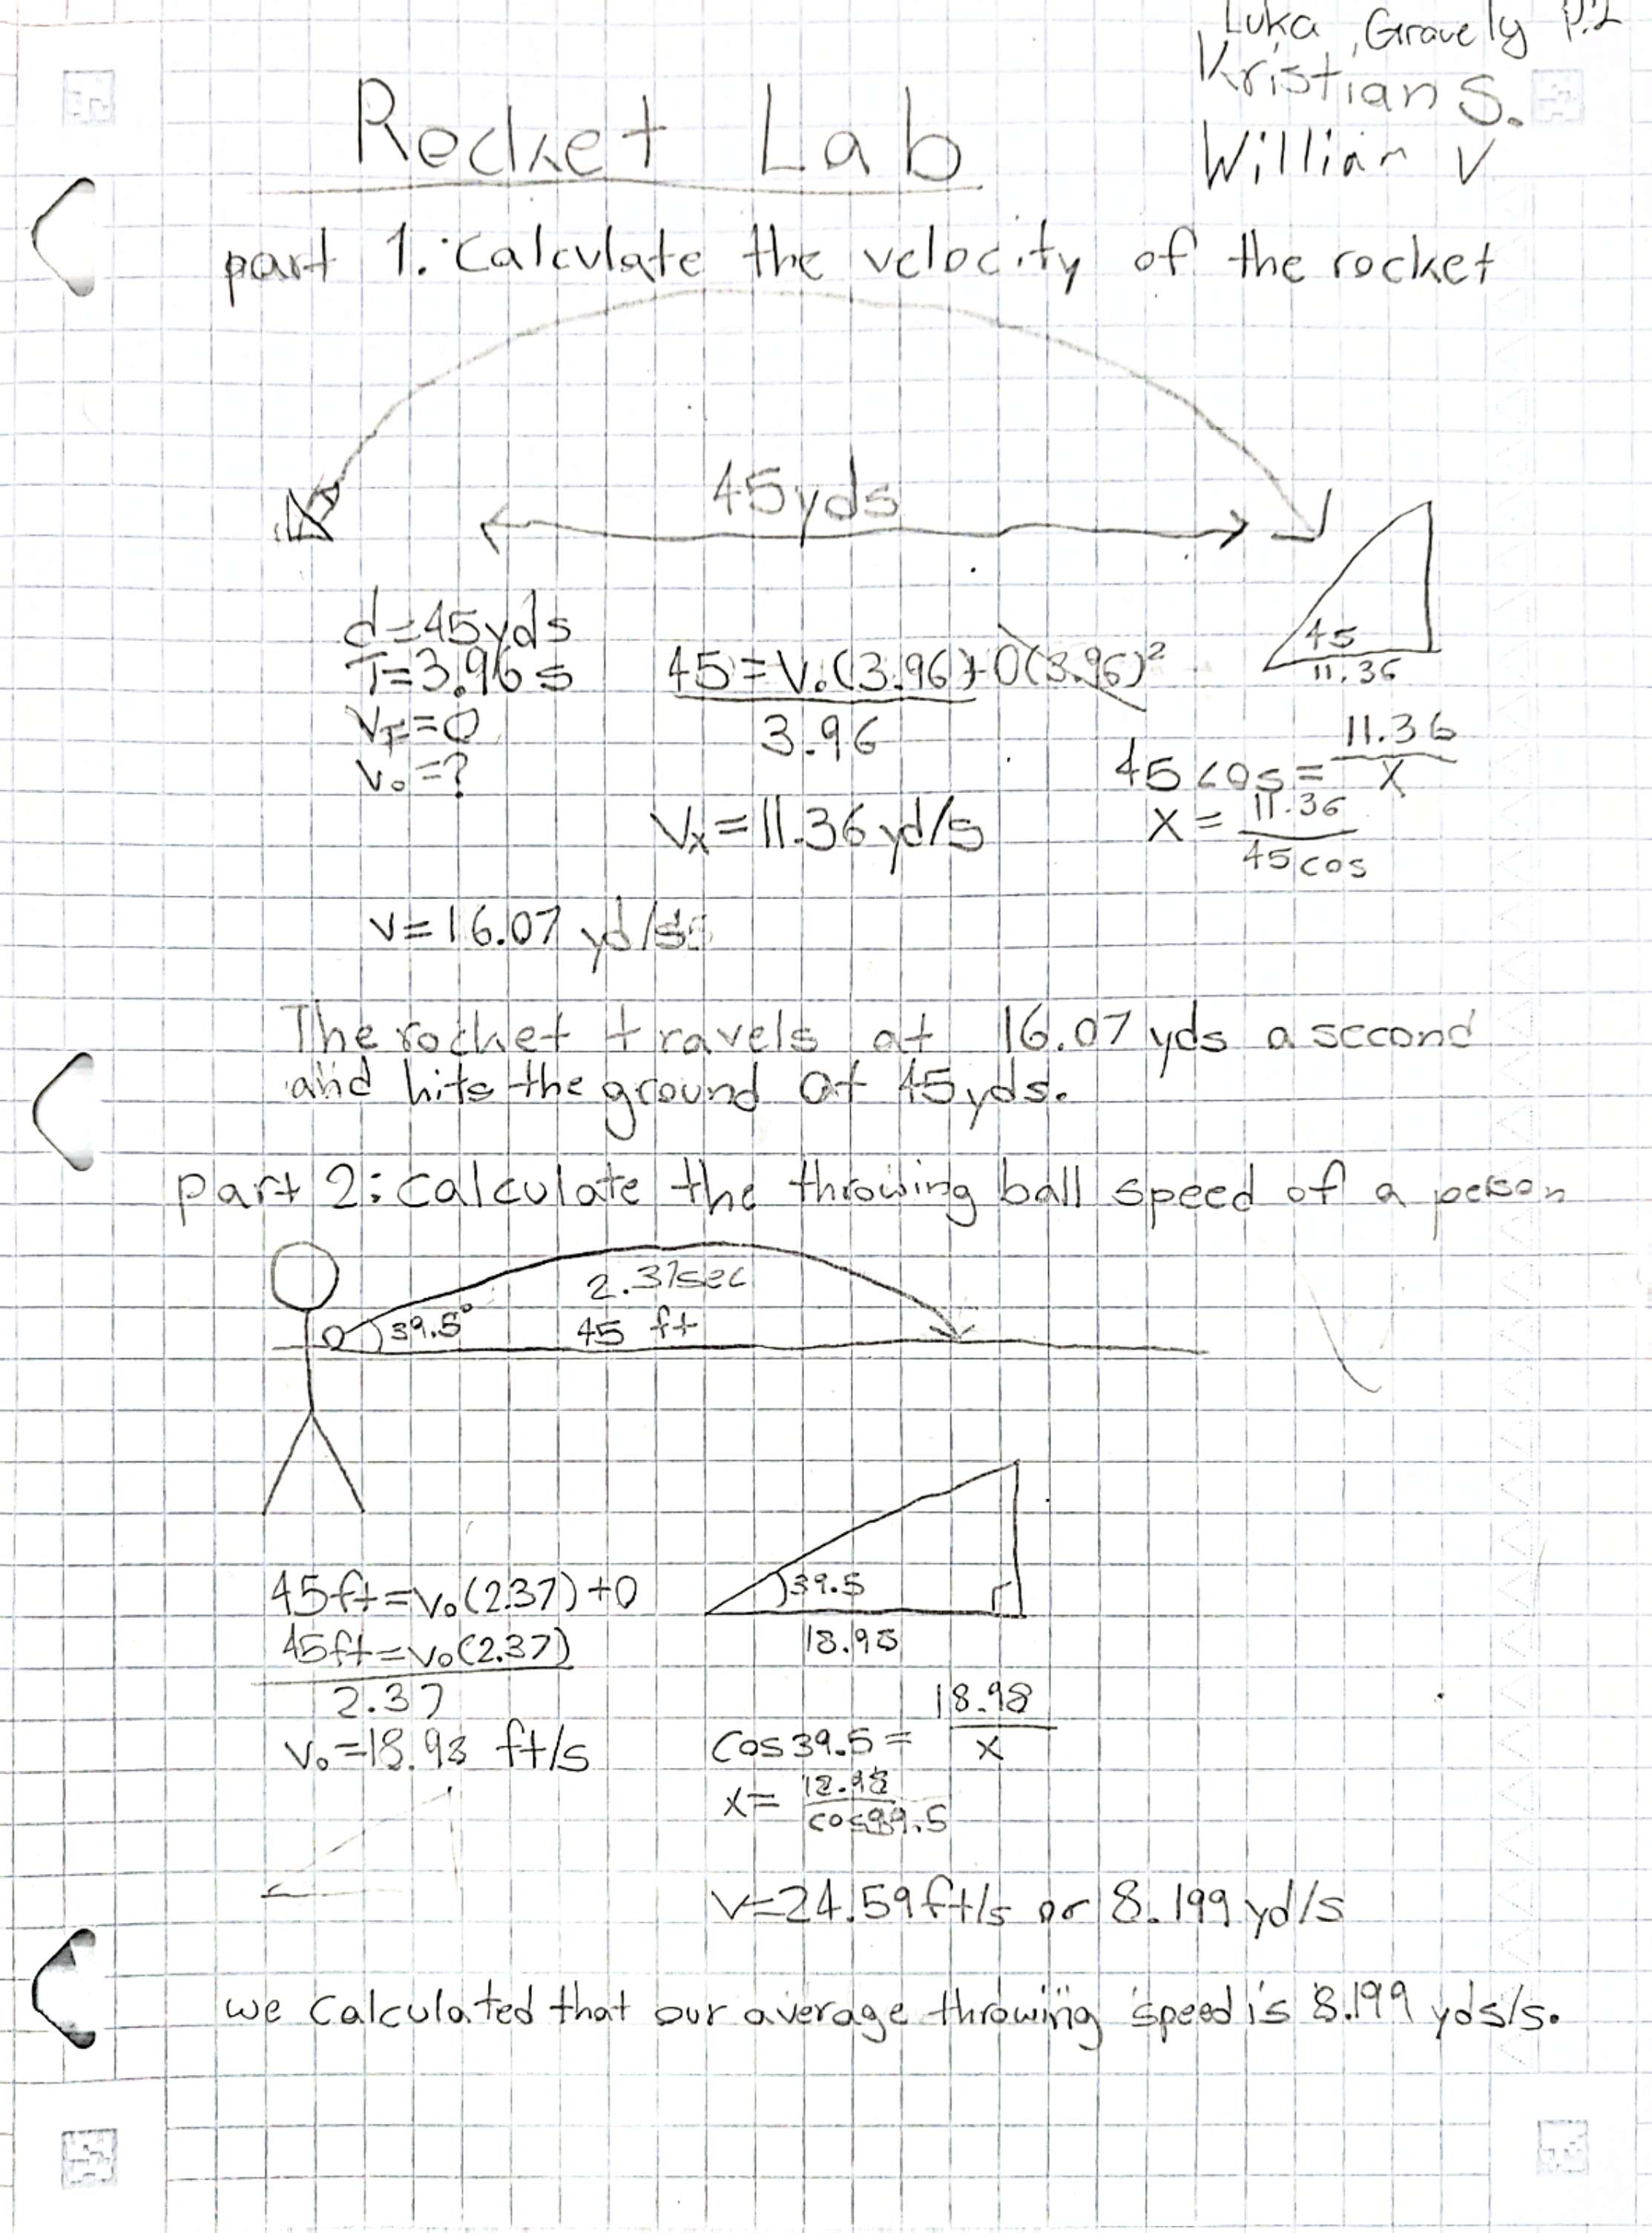 Luka, Gravely P.2
Kristian S.
William V
Rocket Lab
part 1: Calculate the velocity of the rocket
45yds
45
11.36
d=45yds
T=3.96 s
VF=0
V₀=?
45=V₀(3.96)+0(3.96)²
3.96
Vx=11.36 yd/s
45 cos = 11.36
x
x = 11.36
45 cos
V=16.07 yd/s
The rocket travels at 16.07 yds a second
and hits the ground at 45yds.
part 2: Calculate the throwing ball speed of a person
2.37sec
39.5° 45 ft
39.5
18.98
45ft=V₀(2.37)+0
45ft=V₀(2.37)
2.37
V₀=18.98 ft/s
cos39.5= 18.98
x
x= 18.98
cos39.5
V=24.59 ft/s or 8.199 yd/s
we calculated that our average throwing speed is 8.199 yds/s.